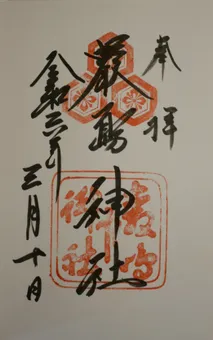 奉拝
厳島神社
令和六年
三月十日
厳島
神社